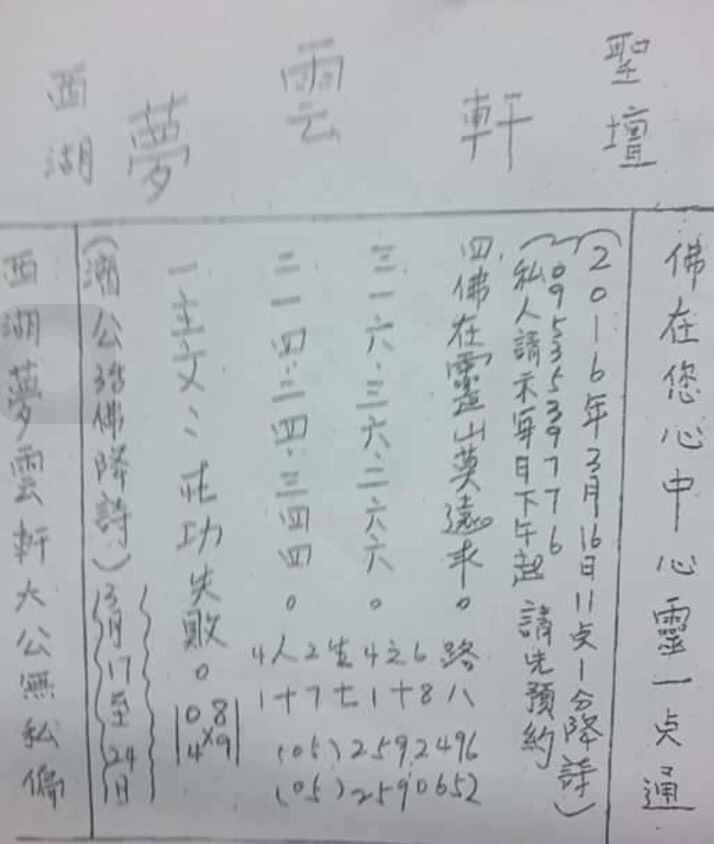 西湖夢雲軒聖壇
西湖夢雲軒大公無私偏
(濟公活佛降詩) 3月17至24日
一主文 壯功失敗。
08
×
49
二一四.三四.三四四。
三一六.三六.二六六。
四.佛在靈山莫遠求。
4人2生4之6路
1十7七1十8八
(05)2592496
(05)2590652
私人請示每日下午起 請先預約
0953539776
(2016年3月16日11点1分降詩)
佛在您心中心靈一点通